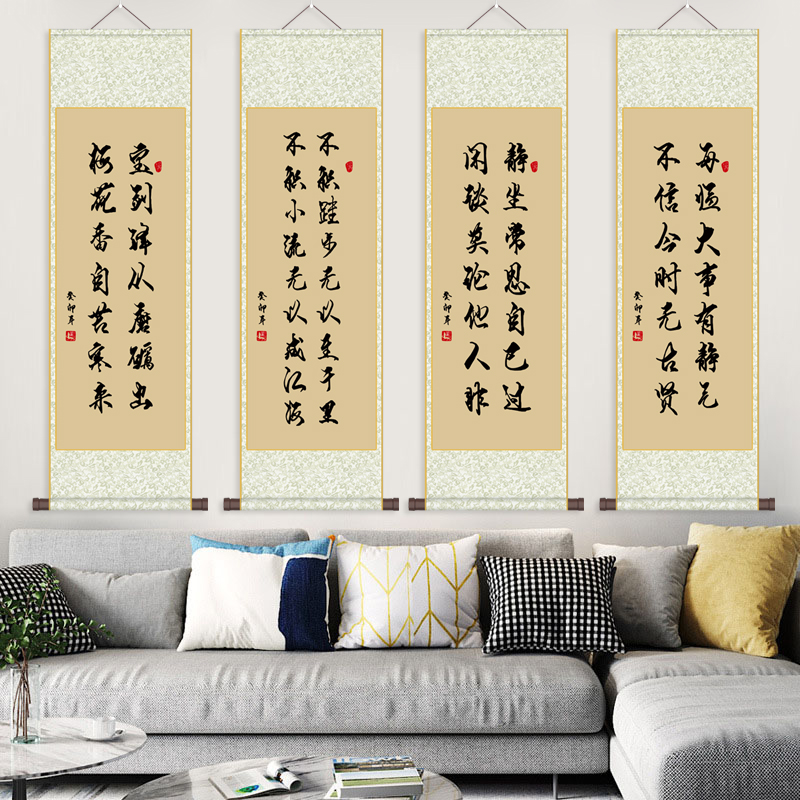 宝剑锋从磨砺出
梅花香自苦寒来
癸卯年
不积跬步无以至千里
不积小流无以成江海
癸卯年
静坐常思自己过
闲谈莫论他人非
癸卯年
每临大事有静气
不信今时无古贤
癸卯年